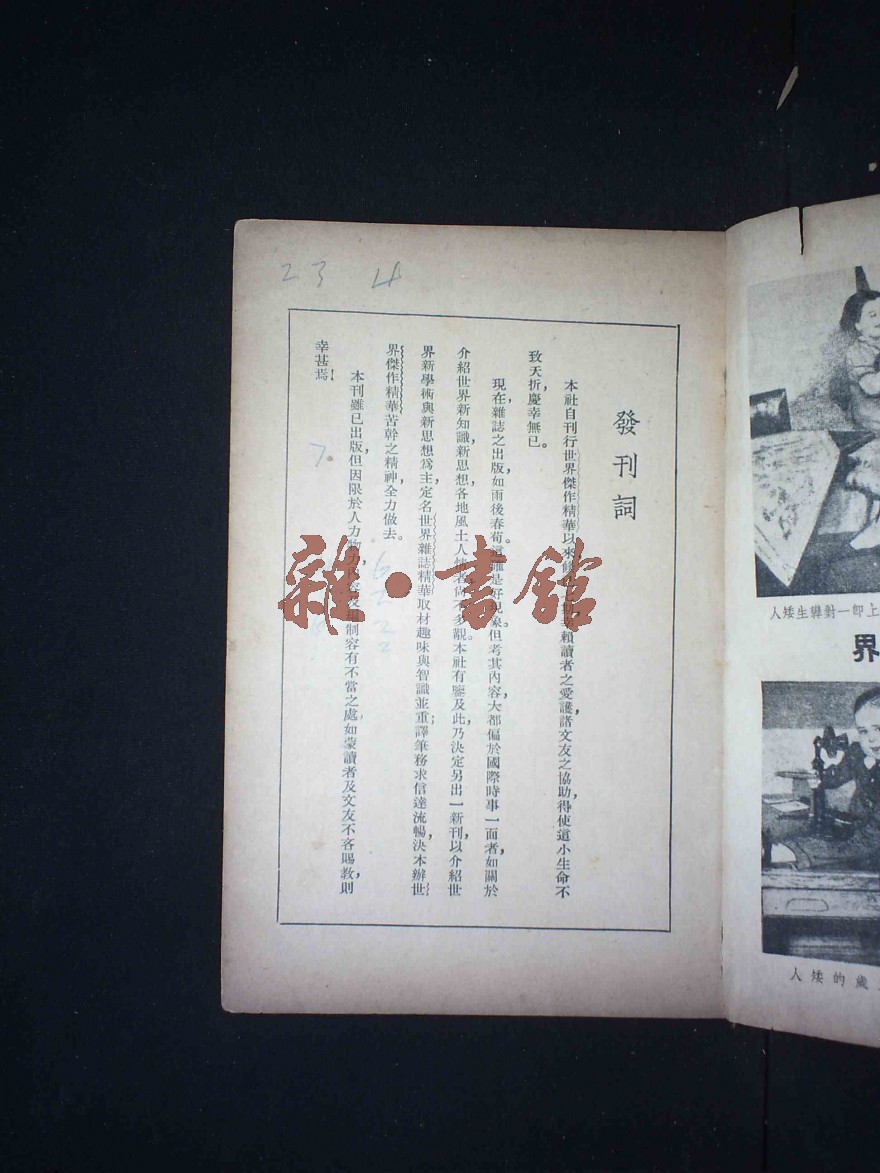 23 4
發刊詞
本社自刊行世界傑作精華以來，賴讀者之愛護，諸文友之協助，得使這小生命不
致夭折，慶幸無已。
現在，雜誌之出版，如雨後春筍。這雖是好現象，但考其內容，大都偏於國際時事一面者，如關於
介紹世界新知識，新思想，各地風土人情者，尚不多覩。本社有鑒及此，乃決定另出一新刊，以介紹世
界新學術與新思想爲主，定名世界雜誌精華，取材趣味與智識並重；譯筆務求信達流暢，決本辦世
界傑作精華苦幹之精神，全力做去。
本刊雖已出版，但因限於人力物制容有不當之處，如蒙讀者及文友不吝賜教，則
幸甚焉！
雜·書館
上卽一對孿生矮人
界
歲的矮人